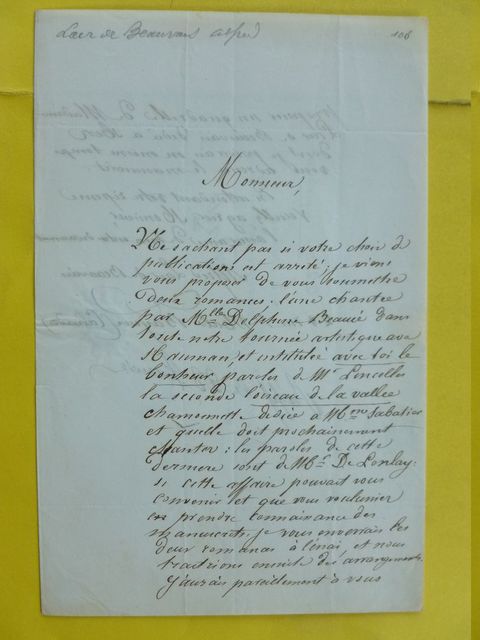 Lair de Beauvais alfred
106
Monsieur,
Ne sachant pas si votre choix de
publications est arrêté; je viens
vous proposer de vous soumettre
deux romances; l'une chantée
par Mlle Delphine Beaucé dans
toute notre tournée artistique avec
Hauman, et intitulée avec toi le
bonheur paroles de Mr Lincelles
la seconde l'oiseau de la vallée
chansonette dédiée à Mme Sabatier
et qu'elle doit prochainement
chanter; les paroles de cette
dernière sont de Mr De Lonlay:
si cette affaire pouvait vous
convenir et que vous voulussiez
prendre connaissance des
manuscrits, je vous enverrais les
deux romances à l'essai, et nous
traiterions ensuite des arrangements.
J'aurais pareillement à vous